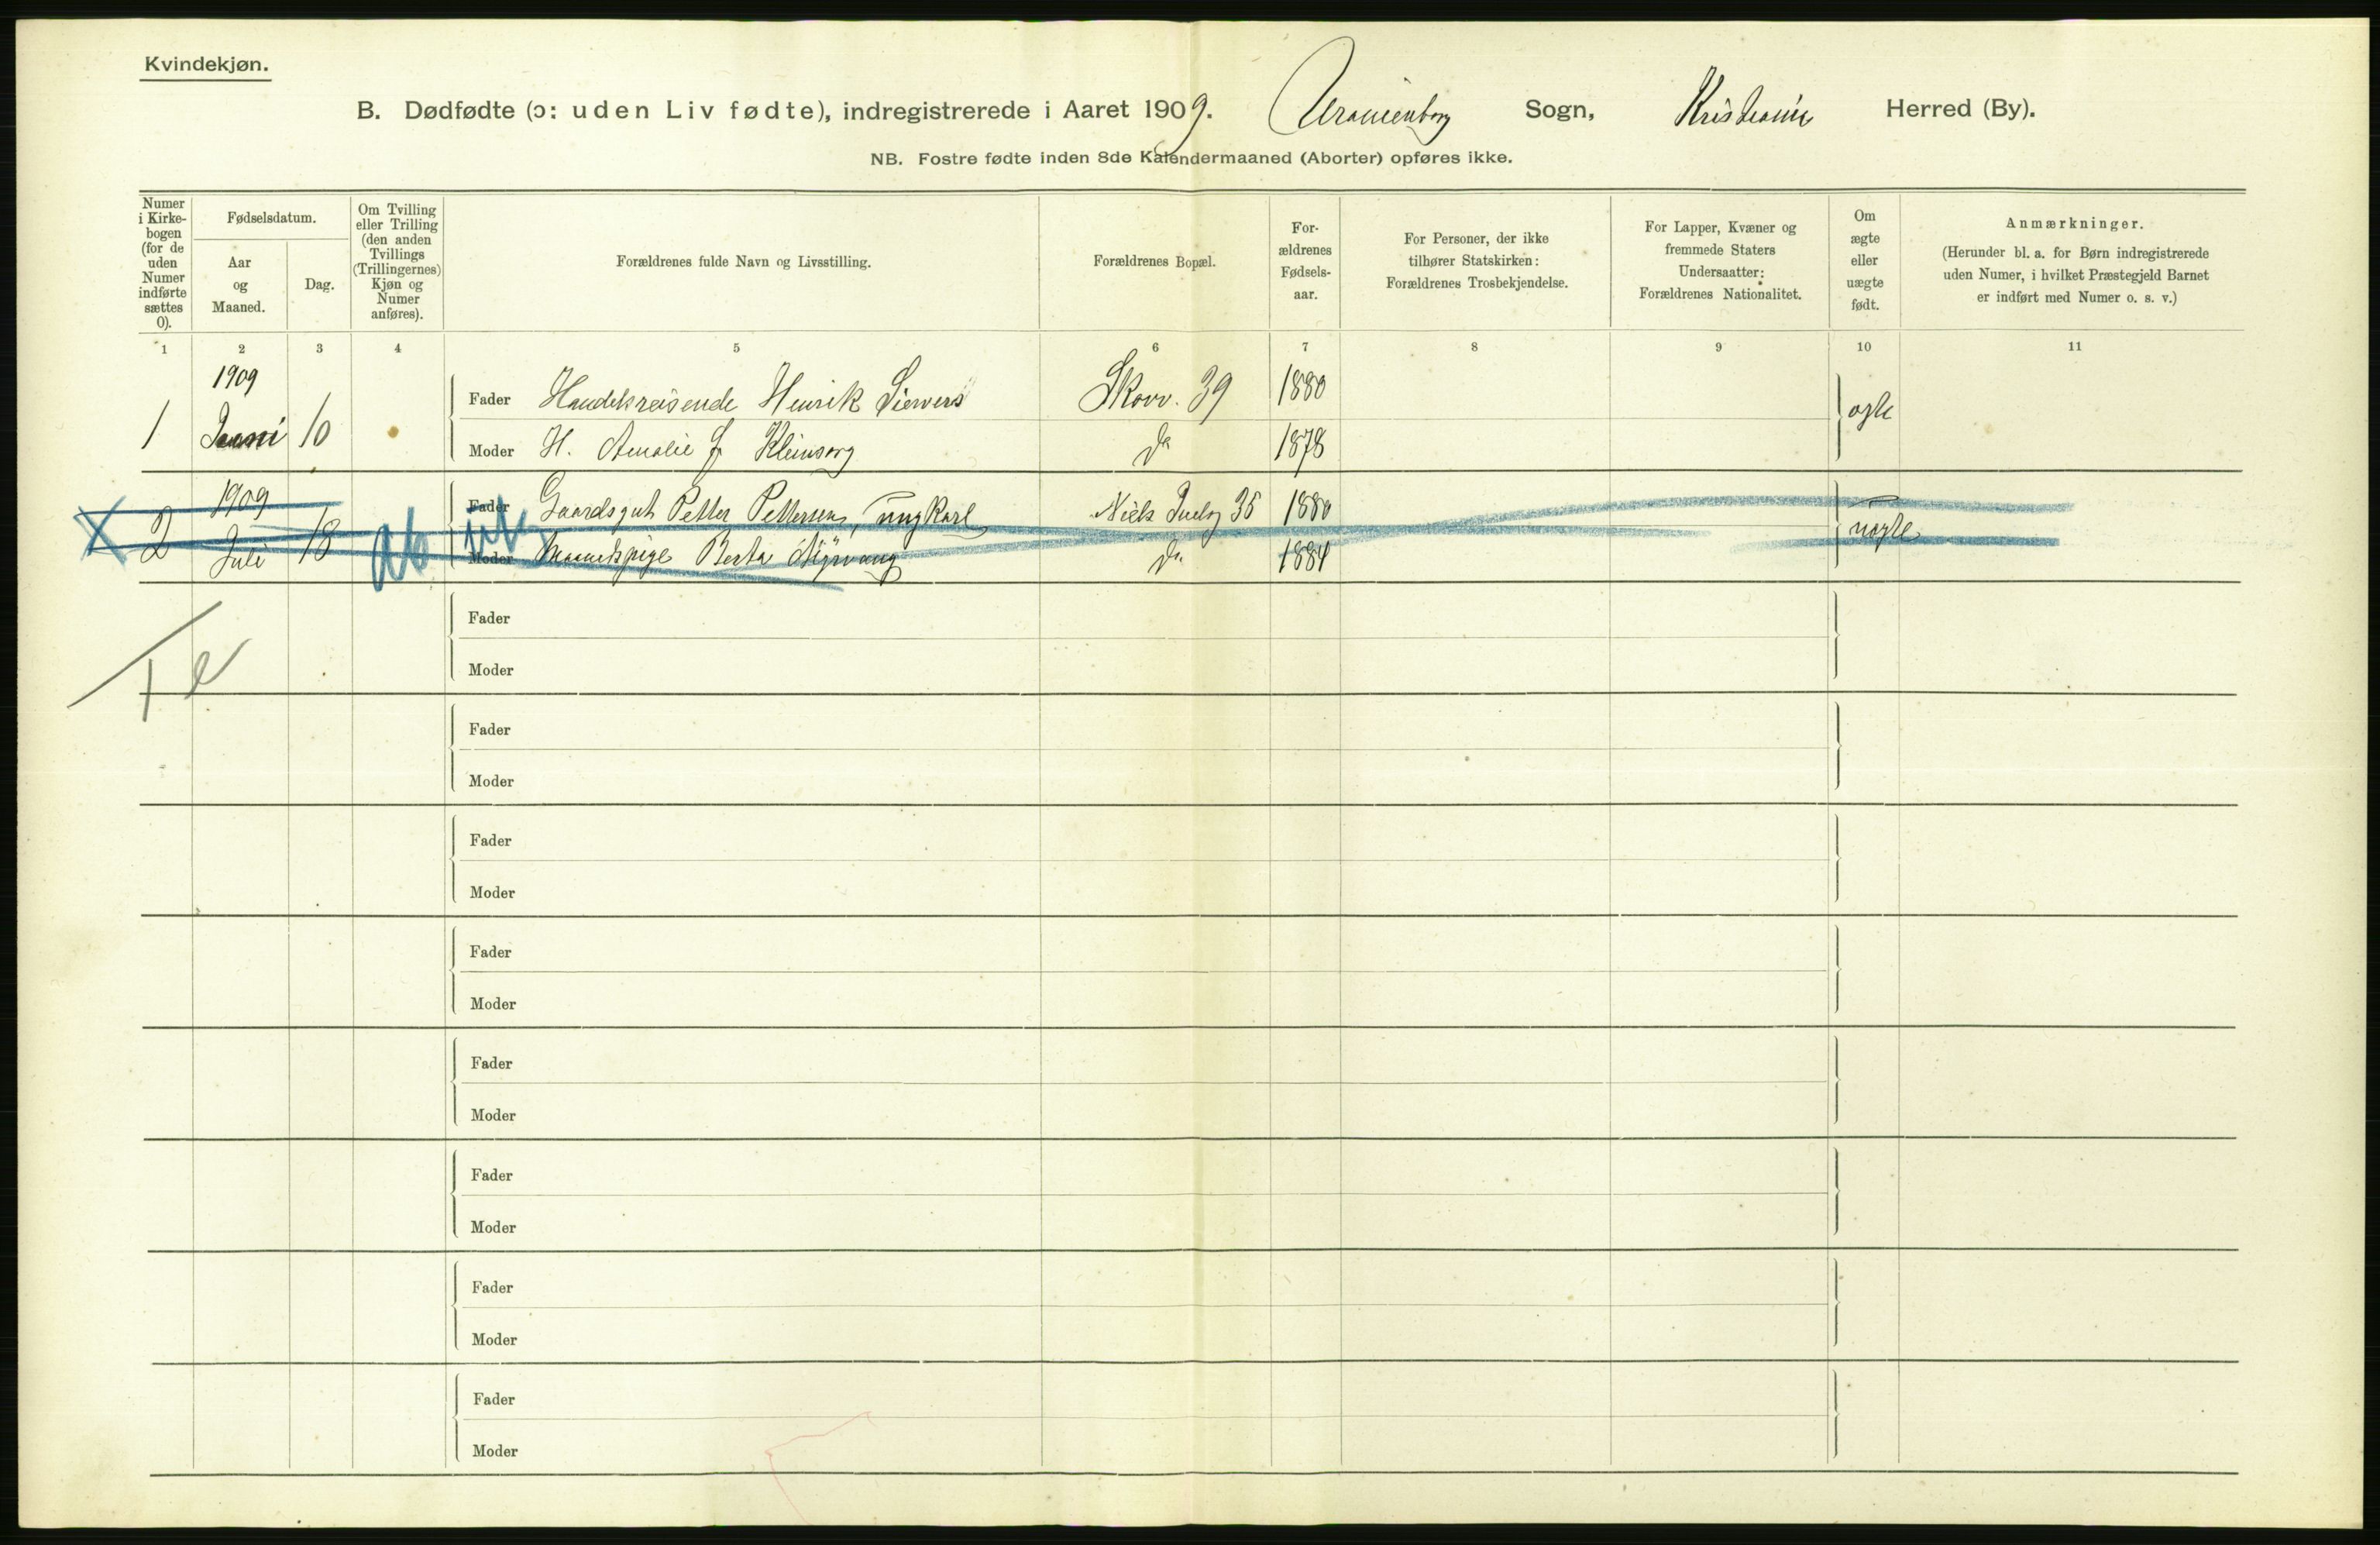 Kvindekjøn.
B. Dødfødte (ɔ: uden Liv fødte), indregistrerede i Aaret 1909. Uranienborg Sogn, Kristiania Herred (By).
NB. Fostre fødte inden 8de Kalendermaaned (Aborter) opføres ikke.
Numer i Kirke-bogen (for de uden Numer indførte sættes 0).
Fødselsdatum.
Aar og Maaned.
Dag.
Om Tvilling eller Trilling (den anden Tvillings (Trillingernes) Kjøn og Numer anføres).
Forældrenes fulde Navn og Livsstilling.
Forældrenes Bopæl.
For-ældrenes Fødsels-aar.
For Personer, der ikke tilhører Statskirken: Forældrenes Trosbekjendelse.
For Lapper, Kvæner og fremmede Staters Undersaatter: Forældrenes Nationalitet.
Om ægte eller uægte født.
Anmærkninger.
(Herunder bl. a. for Børn indregistrerede uden Numer, i hvilket Præstegjeld Barnet er indført med Numer o. s. v.)
1 2 3 4 5 6 7 8 9 10 11
1909
1 Juni 10 Fader Handelsreisende Henrik Siewers Skovv. 39 1880 ægte
Moder H. Amalie J. Kleinsorg Do 1878
1909
2 Juli 18 Fader Gaardsgut Petter Pettersen, ungkarl Niels Juelsg 35 1880 uægte
Moder Berta Do 1884
Fader
Moder
Fader
Moder
Fader
Moder
Fader
Moder
Fader
Moder
Fader
Moder
Fader
Moder
Fader
Moder